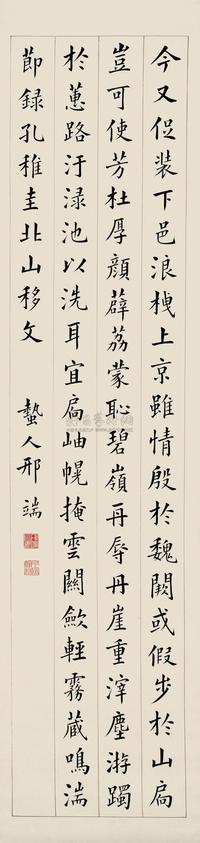 今又促装下邑浪栧上京雖情殷於魏闕或假步於山扃
豈可使芳杜厚顏薜荔蒙恥碧嶺再辱丹崖重滓塵游躅
於蕙路汙渌池以洗耳宜扃岫幌掩雲關歛輕霧蔵鳴湍
節録孔稚圭北山移文 蟄人邢端